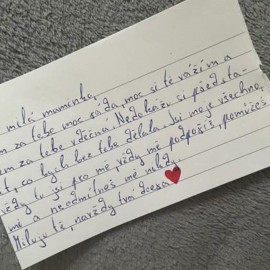 milá maminko,
za tebe moc ráda, moc si tě vážím a
em za tebe vděčná. Nedokážu si předsta-
it, co bych bez tebe dělala. Jsi moje všechno,
vždy tu jsi pro mě, vždy mě podpoříš, pomůžeš
mi a neodmítneš mě nikdy.
Miluje tě, navždy tvá dcera